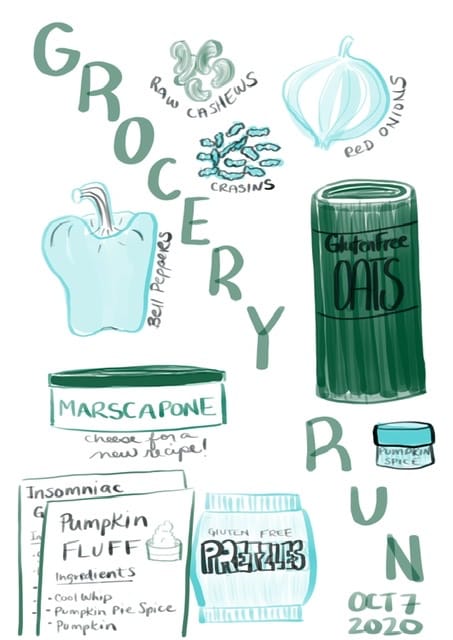 GROCERY
RAW CASHEWS
RED ONIONS
CRASINS
Bell Peppers
GlutenFree
OATS
MARSCAPONE
cheese for a
new recipe!
RUN
PUMPKIN
SPICE
Insomniac
G
In
Pumpkin
FLUFF
Ingredients
- Cool Whip
- Pumpkin Pie Spice
- Pumpkin
GLUTEN FREE
PRETZLES
OCT 7
2020